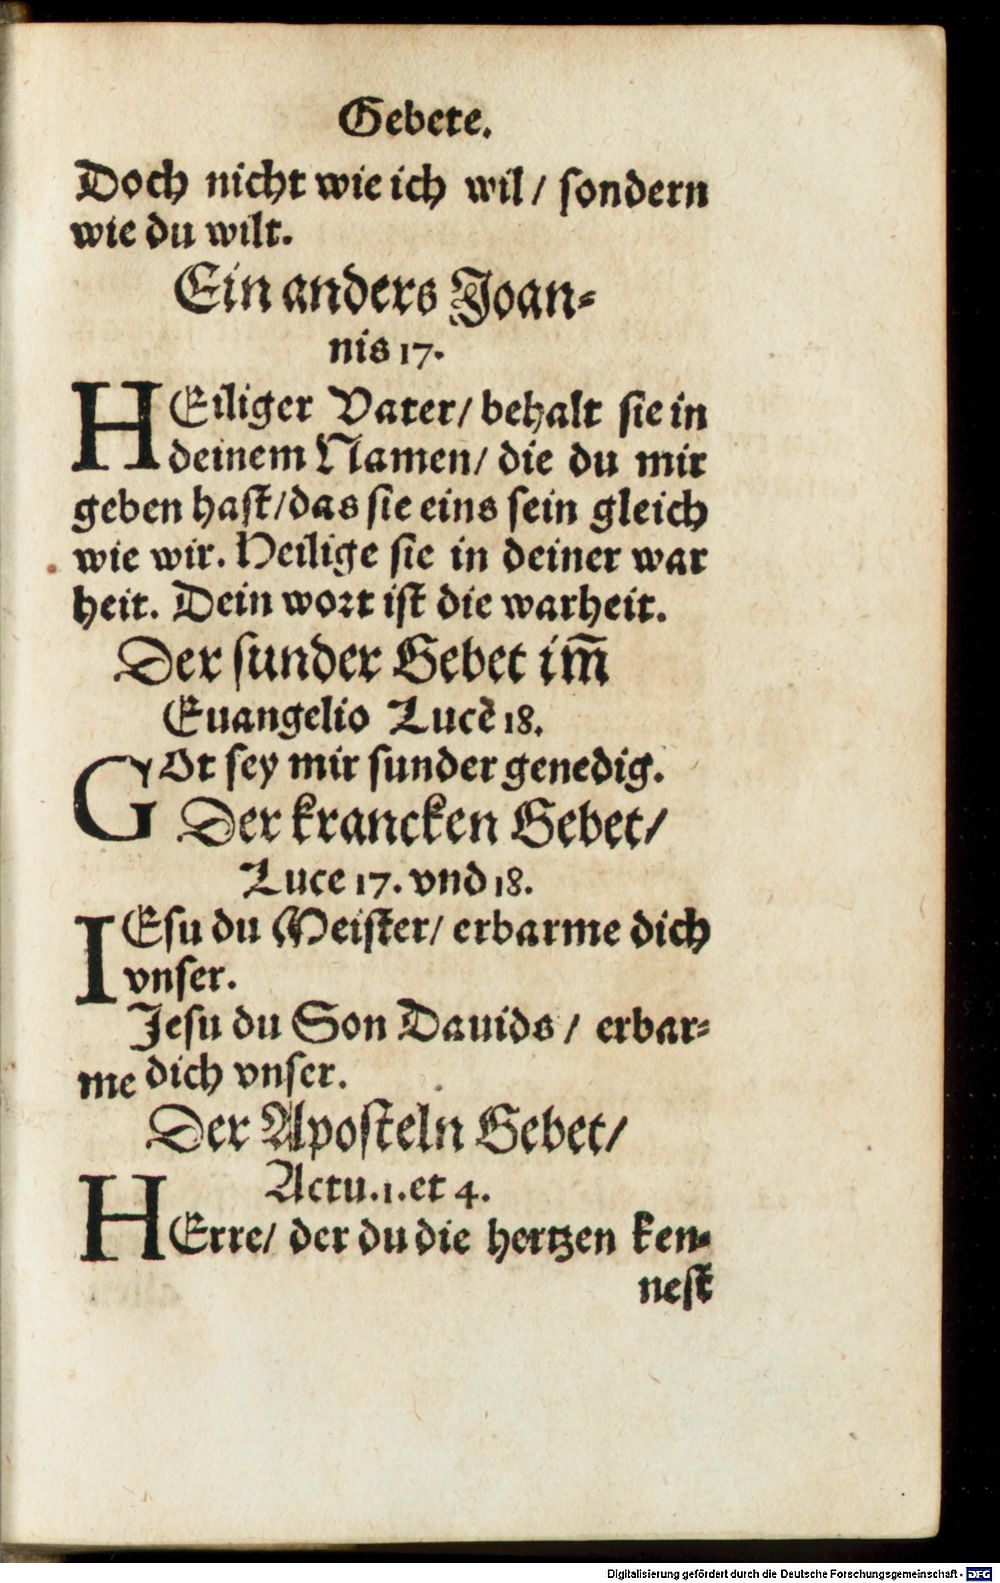 Gebete.
Doch nicht wie ich wil/ sondern
wie du wilt.
Ein anders Joan⸗
nis 17.
HEiliger Vater/ behalt sie in
deinem Namen/ die du mir
geben hast/das sie eins sein gleich
wie wir. Heilige sie in deiner war
heit. Dein wort ist die warheit.
Der sunder Gebet im̄
Euangelio Lucē 18.
GOt sey mir sunder genedig.
Der krancken Gebet/
Luce 17. vnd 18.
IEsu du Meister/ erbarme dich
vnser.
Jesu du Son Dauids/ erbar⸗
me dich vnser.
Der Aposteln Gebet/
Actu.1.et 4.
HErre/ der du die hertzen ken⸗
nest
Digitalisierung gefördert durch die Deutsche Forschungsgemeinschaft - DFG